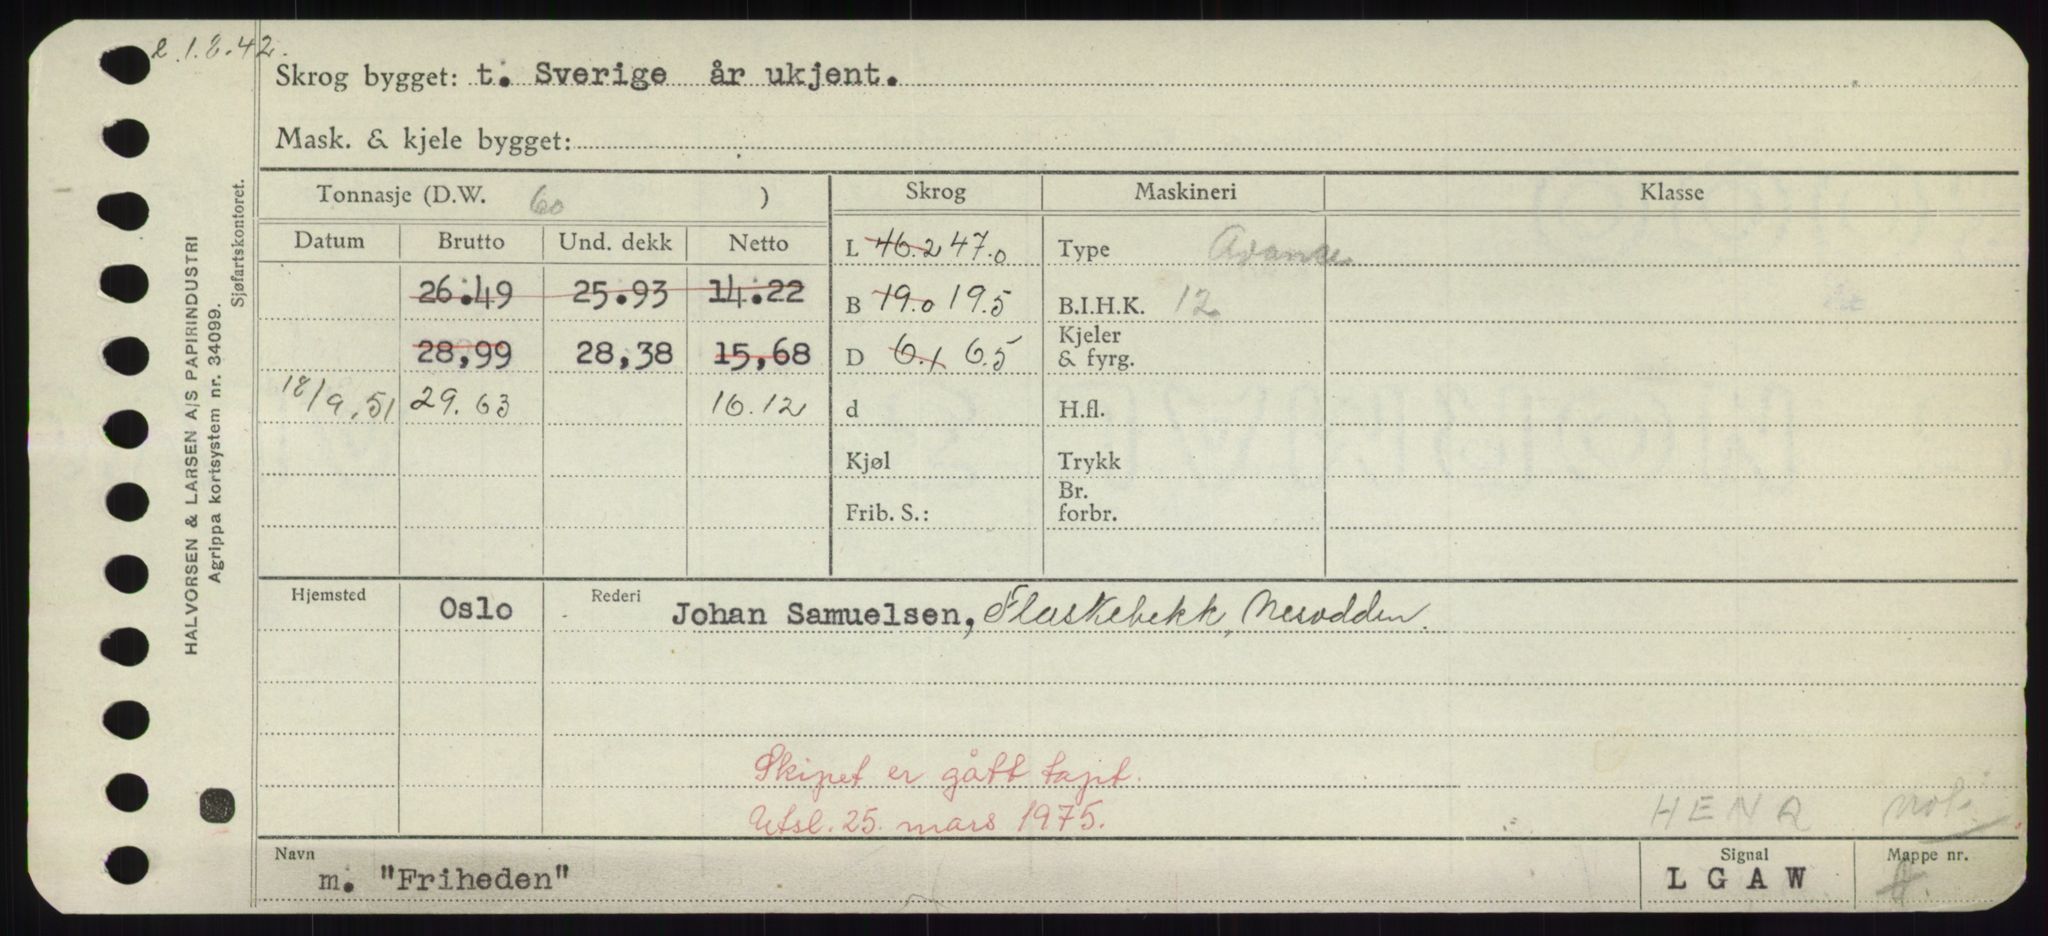 2.1.8.42.
Skrog bygget: t. Sverige år ukjent.
Mask. & kjele bygget:
Tonnasje (D.W. 60 ) Skrog Maskineri Klasse
Datum Brutto Und. dekk Netto L 46.2 47.0 Type
26.49 25.93 14.22 B 19.0 19.5 B.I.H.K. 12
28,99 28,38 15,68 D 6.1 6.5 Kjeler & fyrg.
18/9.51 29.63 16.12 d H.fl.
Kjøl Trykk
Frib. S.: Br. forbr.
Hjemsted Oslo Rederi Johan Samuelsen, Flaskebekk, Nesodden.
Skipet er gått tapt.
Utsl. 25. mars 1975.
HENA
Navn Signal Mappe nr.
m. "Friheden" LGAW
HALVORSEN & LARSEN A/S PAPIRINDUSTRI
Agrippa kortsystem nr. 34099.
Sjøfartskontoret.